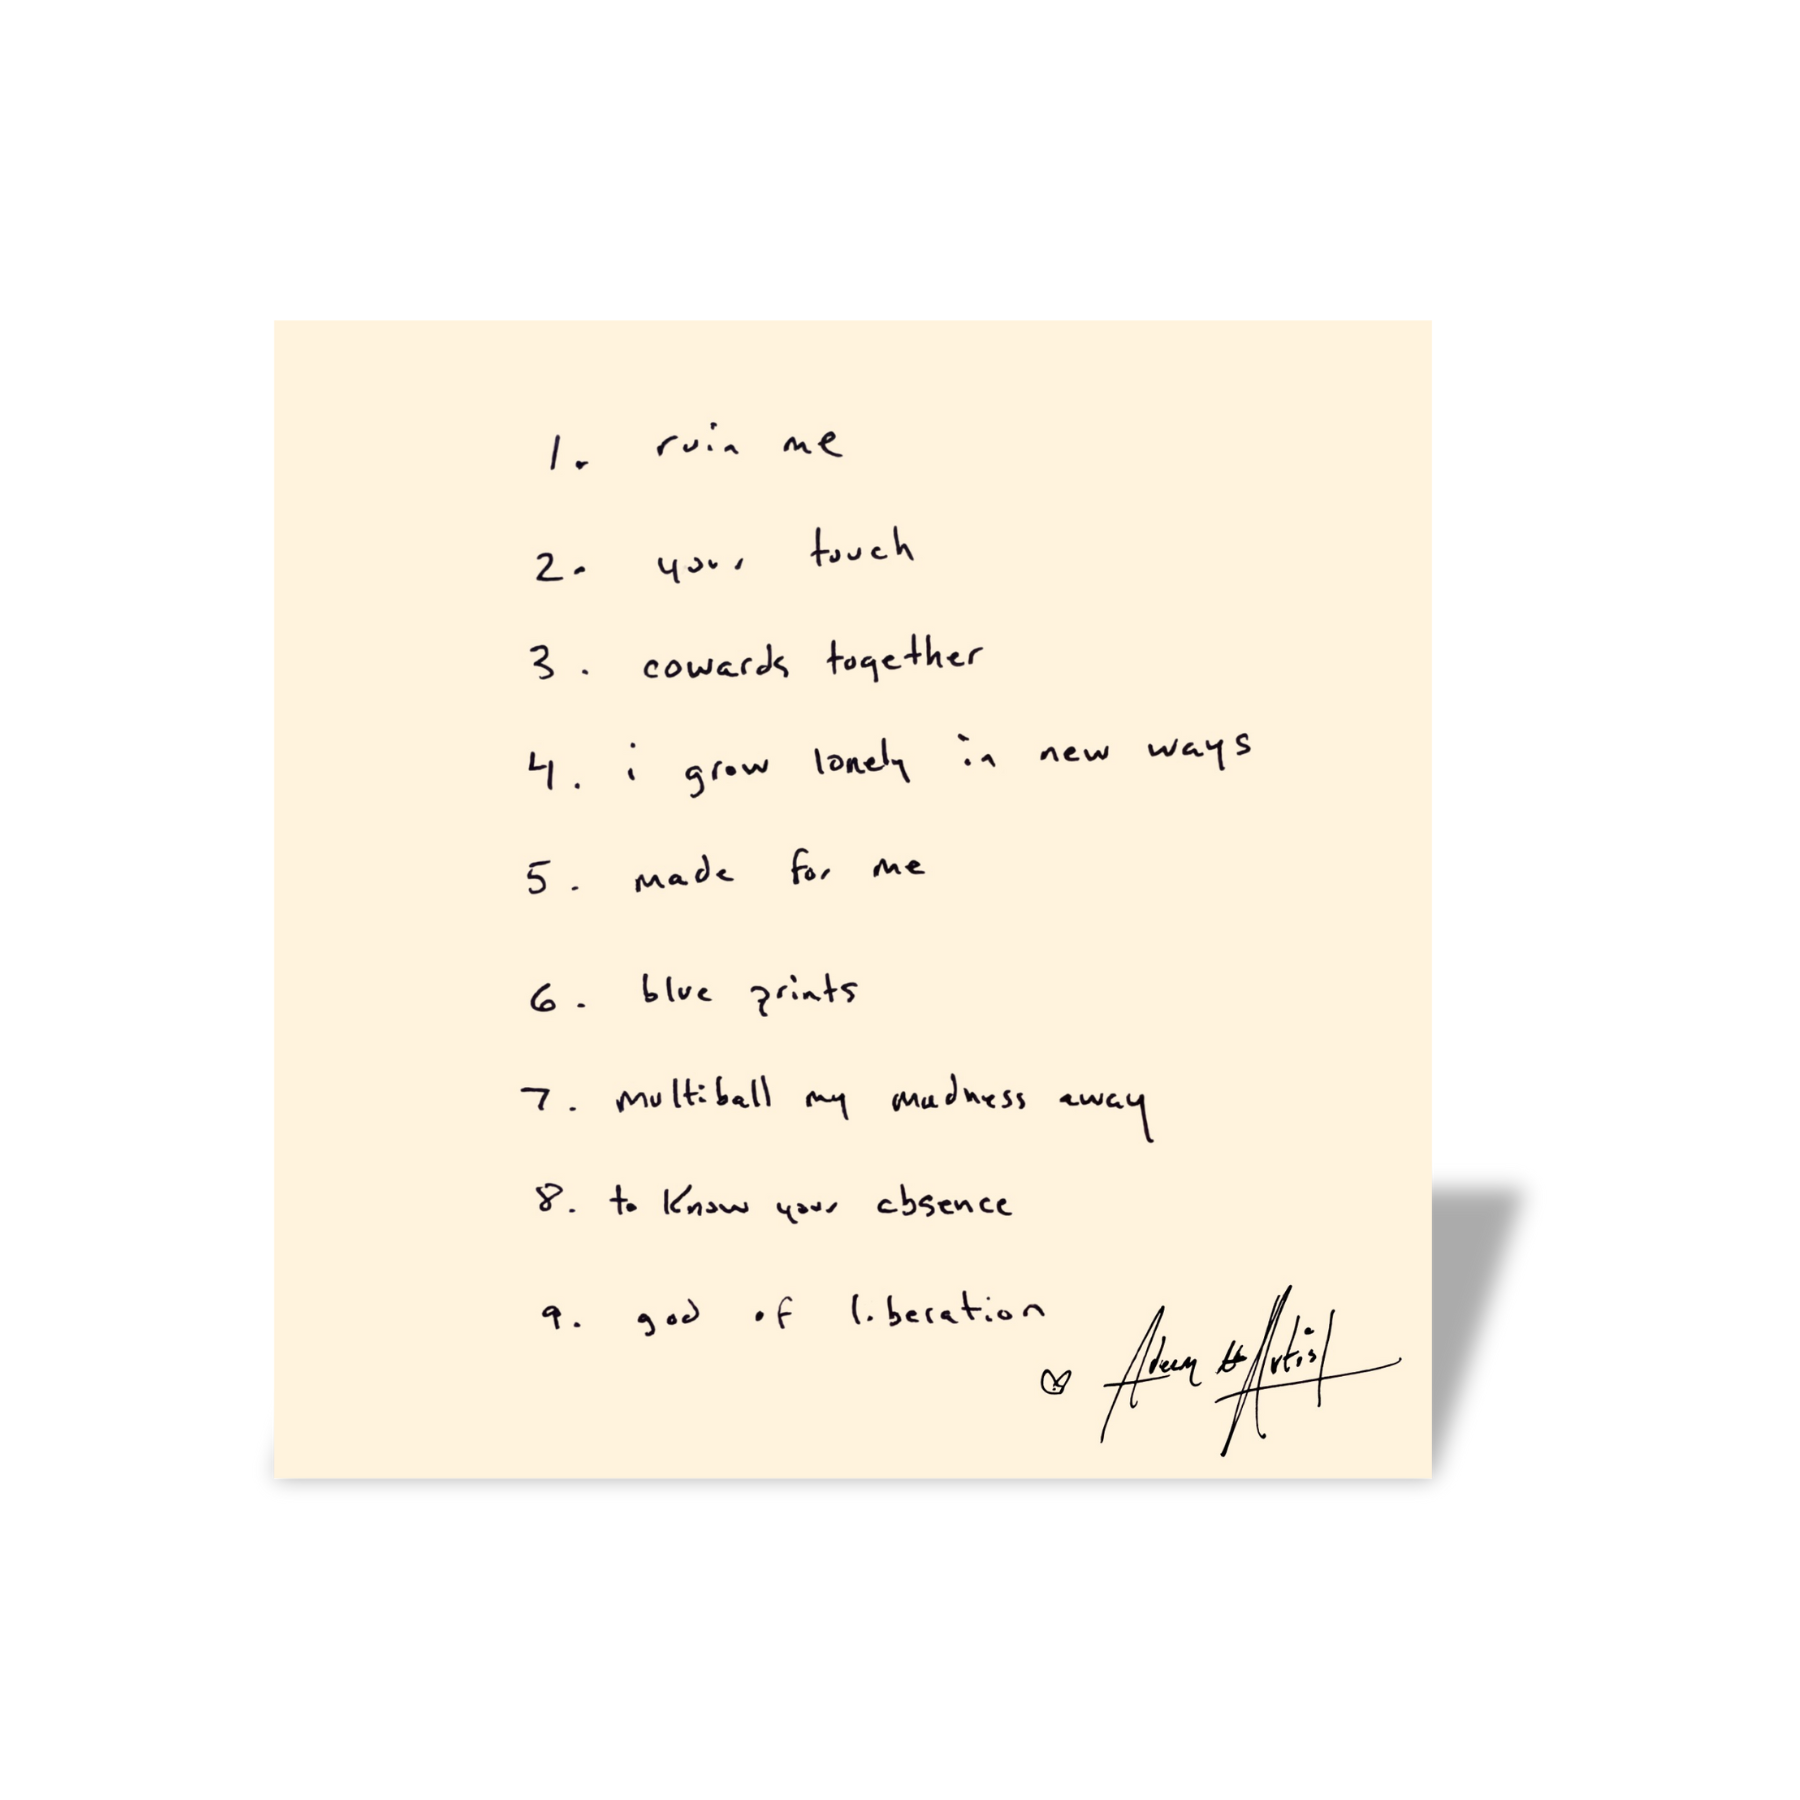 1. ruin me
2. your touch
3. cowards together
4. i grow lonely in new ways
5. made for me
6. blue prints
7. multiball my madness away
8. to know your absence
9. god of liberation
Artist